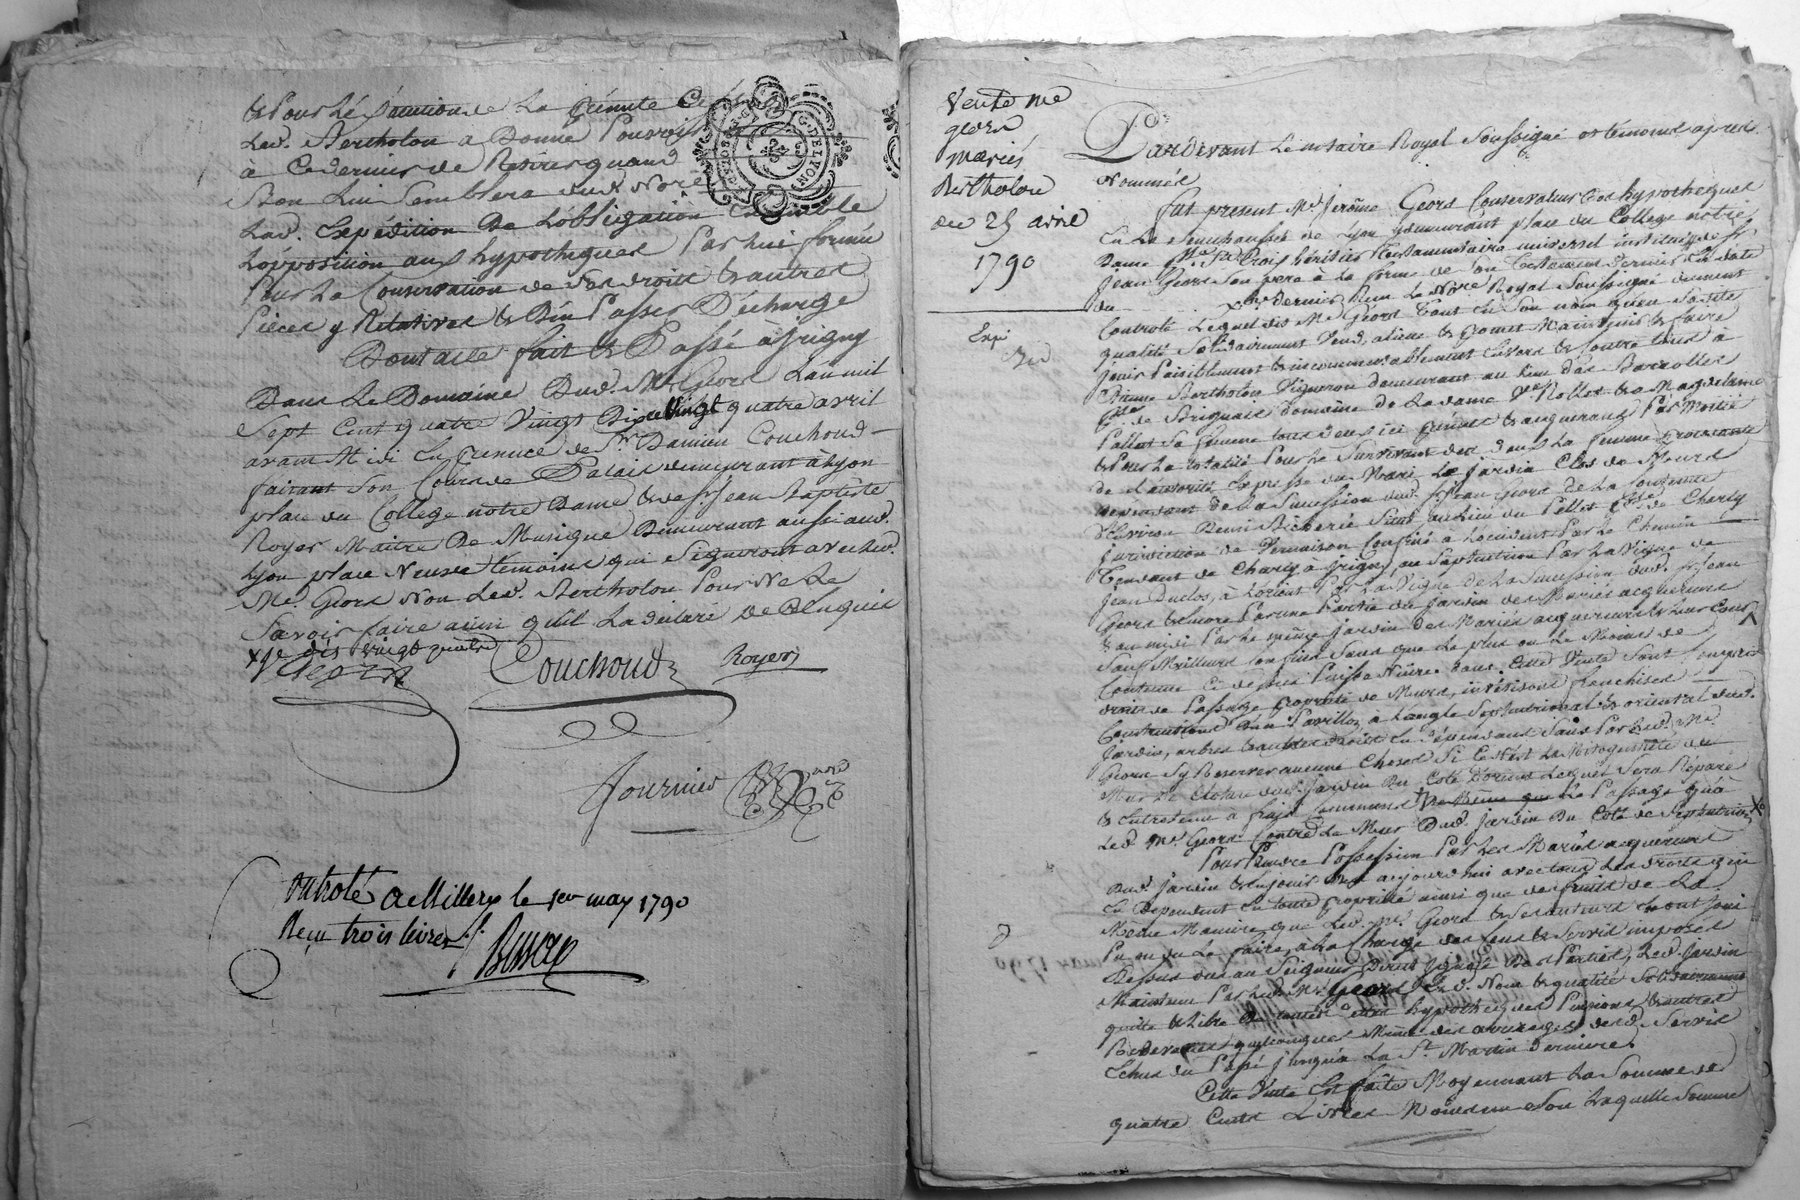 & Pour Lé
Led. Bertholon a Donné Pouvoir
à Ce dernier de Retirer quand
Bon Lui Semblera dud. Nore
Lad. Expédition De Lobligation Ensemble
Lopposition aux hypotheques Par lui formée
Pour La Conservation de Ses droits & autres
Pieces y Relatives & D'en Passer Décharge
Dont acte fait & Passé à grigny
Dans Le Domaine Dud. Me. Geors Lan mil
Sept Cent quatre Vingt Dix le Vingt quatre avril
avant Midi En presence de Sr. Damien Couchoud
faisant Son Cours de Palais demeurant à Lyon
place du College notre Dame & de Sr. Jean Baptiste
Royer Maitre De Musique Demeurant aussi aud.
Lyon place Neuve temoins qui Signeront avec led.
Me. Geors Non Led. Bertholon Pour Ne Le
Savoir faire ainsi qu'il La déclaré De Ce Enquis
vingt quatre
Geors Couchoud Royer
Fournier nore
Controlé A Millery le 1er may 1790
Reçu trois livres
G. DE LYON
Vente Me
geors
mariés
Bertholon
du 25 avril
1790
Exp
Pardevant Le notaire Royal Soussigné & témoins apres
Nommés
fut present Me. Jerôme Geors Conservateur Des hypotheques
En La Senechaussée de Lyon y demeurant place du College notre
Dame heritier Testamentaire universel institué de Sr.
Jean Geors Son pere à La forme de Son Testament dernier En date
du dernier Reçu Le Nore Royal Soussigné dument
Controlé Lequel dit Me Geors Tant En Son nom qu'en Sadite
qualité Solidairement Vend, aliene & promet Maintenir & faire
Jouir Paisiblement & incommutablement Envers & Contre tous à
Bertholon Vigneron demeurant au Lieu des Barolles
de Brignais domaine de La dame & Magdelaine
Sa femme tous deux ici présens & acquerans Par Moitié
& Pour La totalité Pour Le Survivant des deux La femme
de Lautorité Expresse du Mari Le Jardin Clos de Murs
dependant de La Succession dud. Sr. Jean Geors de La Contenue
D'Environ Demi Bicherée Situé au Lieu du Pellet de Charly
Jurisdiction de Vernaison Confiné à Loccident Par Le Chemin
Tendant de Charly à grigny au Septentrion Par La Vigne de
Jean Duclos, à Lorient Par La Vigne de La Succession dud. Sr. Jean
Geors & Encore Par une Partie du Jardin des Mariés acquereurs
& au midi Par Le même Jardin des Mariés acquereurs
Sauf Meilleurs Confins Sans que Le plus ou Le Moins de
Contenue Ci dessus Puisse Nuire Dans Cette Vente Sont Compris
droits de Passage propriété de Murs, franchises
Constructions D'un Pavillon à Langle Septentrional & oriental dud.
Jardin, arbres & autres droits En Dependans Sans Par Led. Me.
Geors Sy Reserver aucune Chose Si Ce Nest La Mitoyenneté du
Mur De Cloture dud. Jardin Du Coté Dorient Lequel Sera Réparé
& Entretenu à frais Communs Le Passage qu'a
Led. Me. Geors Contre Le Mur Dud. Jardin Du Coté de Septentrion
Pour Prendre Possession Par Les Mariés acquereurs
Dud. Jardin & En Jouir Des aujourdhui avec tous Les droits qui
En Dependent En toute propriété ainsi que des fruits de La
Même Maniere que Led. Me. Geors & Ses auteurs En ont Joui
Pu ou du Le faire, à La Charge des Cens & Servis imposés
Dessus dus au Seigneur Direct Led. Jardin
Maintenu Par Led. Me. Geors Esd. Noms & qualité Solidairement
quitte & Libre De toutes hypotheques Pensions & autres
Redevances quelconques Même des arrerages desd. Servis
Echus du Passé Jusqu'à La St. Martin Derniere
Cette Vente Est faite Moyennant La Somme de
quatre Cents Livres Laquelle Somme